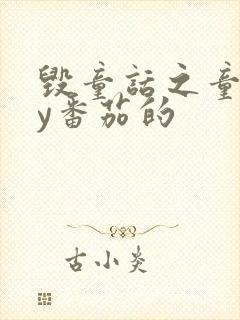 毁童话之童
y番茄的
古小炎